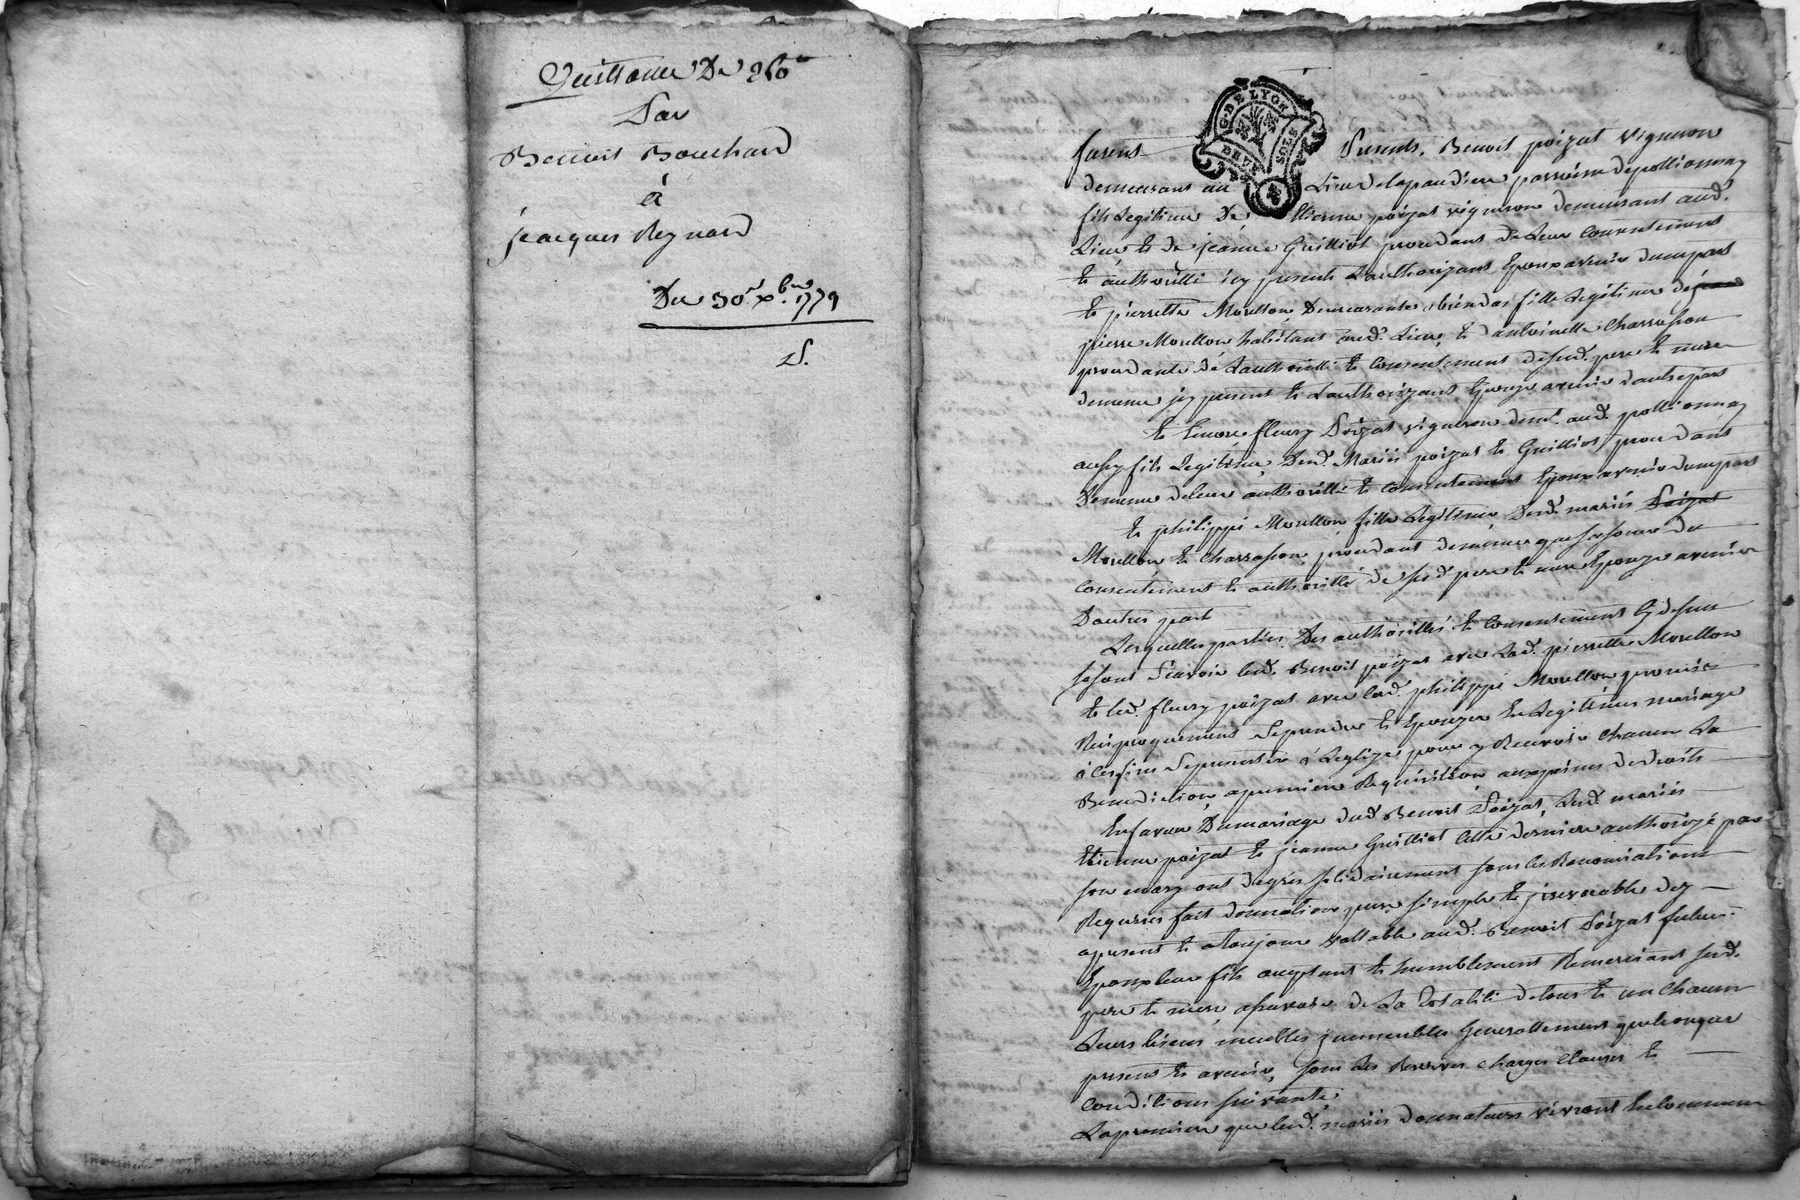 Quittance De 260#
Par
Benoit Bouchard
à
jacques Reynard
Du 30e xbre 1779
G. DE LYON
furent Presents, Benoit poizat vigneron
demeurant au Lieu delapaudiere parroisse depollionnay
fils Legitime De Etienne poizat vigneron demeurant aud.
Lieu et de jeanne Guilliot procedant de Leur Consentement
et authorité icy presents Lauthorizant Epoux avenir dunepart
Et pierrette Morellon Demeurante fille Legitime de
pierre Morellon habitant aud. Lieu, et dantoinette Charrasson
procedante de Lauthorité et Consentement desesd. pere et mere
dememe icy presents et Lauthorizant Epouze avenir dautrepart
Et Encore fleury Poizat vigneron demt. aud. pollionnay
aussy fils Legitime Desd. Mariés poizat et Guilliot procedant
Dememe deleur authorité et consentement Epoux avenir dunepart
Et philippe Morellon fille Legitime Desd. mariés Poizat
Morellon et Charrasson, procedant dememe que sa soeur du
Consentement et authorité de sesd. pere et mere Epouze avenir
Dautre part
Lesquelles parties Des authorités et Consentement Cydessus
sesont Scavoir led. Benoit poizat avec Lad. pierrette Morellon
et led. fleury poizat avec lad. philippe Morellon promis
Reciproquement Seprendre et Epouzer En Legitime mariage
a Cesfins Sepresenter a Leglize pour y Recevoir Chacun La
Benediction apremiere Requisition auxpeines dedroits
Enfaveur Dumariage dud. Benoit Poizat, Lesd. mariés
Etienne poizat et jeanne Guilliot Cette derniere authorizé par
son mary ont degrés solidairement sous les Renonciations
Requises fait donnation pure simple et jrrevocable dez
apresent et atoujour vallable aud. Benoit Poizat futur
Epoux leur fils acceptant et humblement Remerciant sesd.
pere et mere, asavoir de La totalité detous et un Chacun
Leurs biens meubles jmmeubles Generallement quelconques
presents et avenir, sous les Reserves Charges Clauses et
Conditions suivantes
Lapremiere que lesd. mariés donnateurs vivront